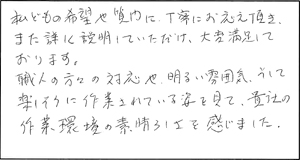 私どもの希望や質問に、丁寧にお応え頂き、
また詳しく説明していただけ、大変満足して
おります。
職人の方々の対応や、明るい雰囲気、そして
楽しそうに作業されている姿を見て、貴社の
作業環境の素晴らしさを感じました。